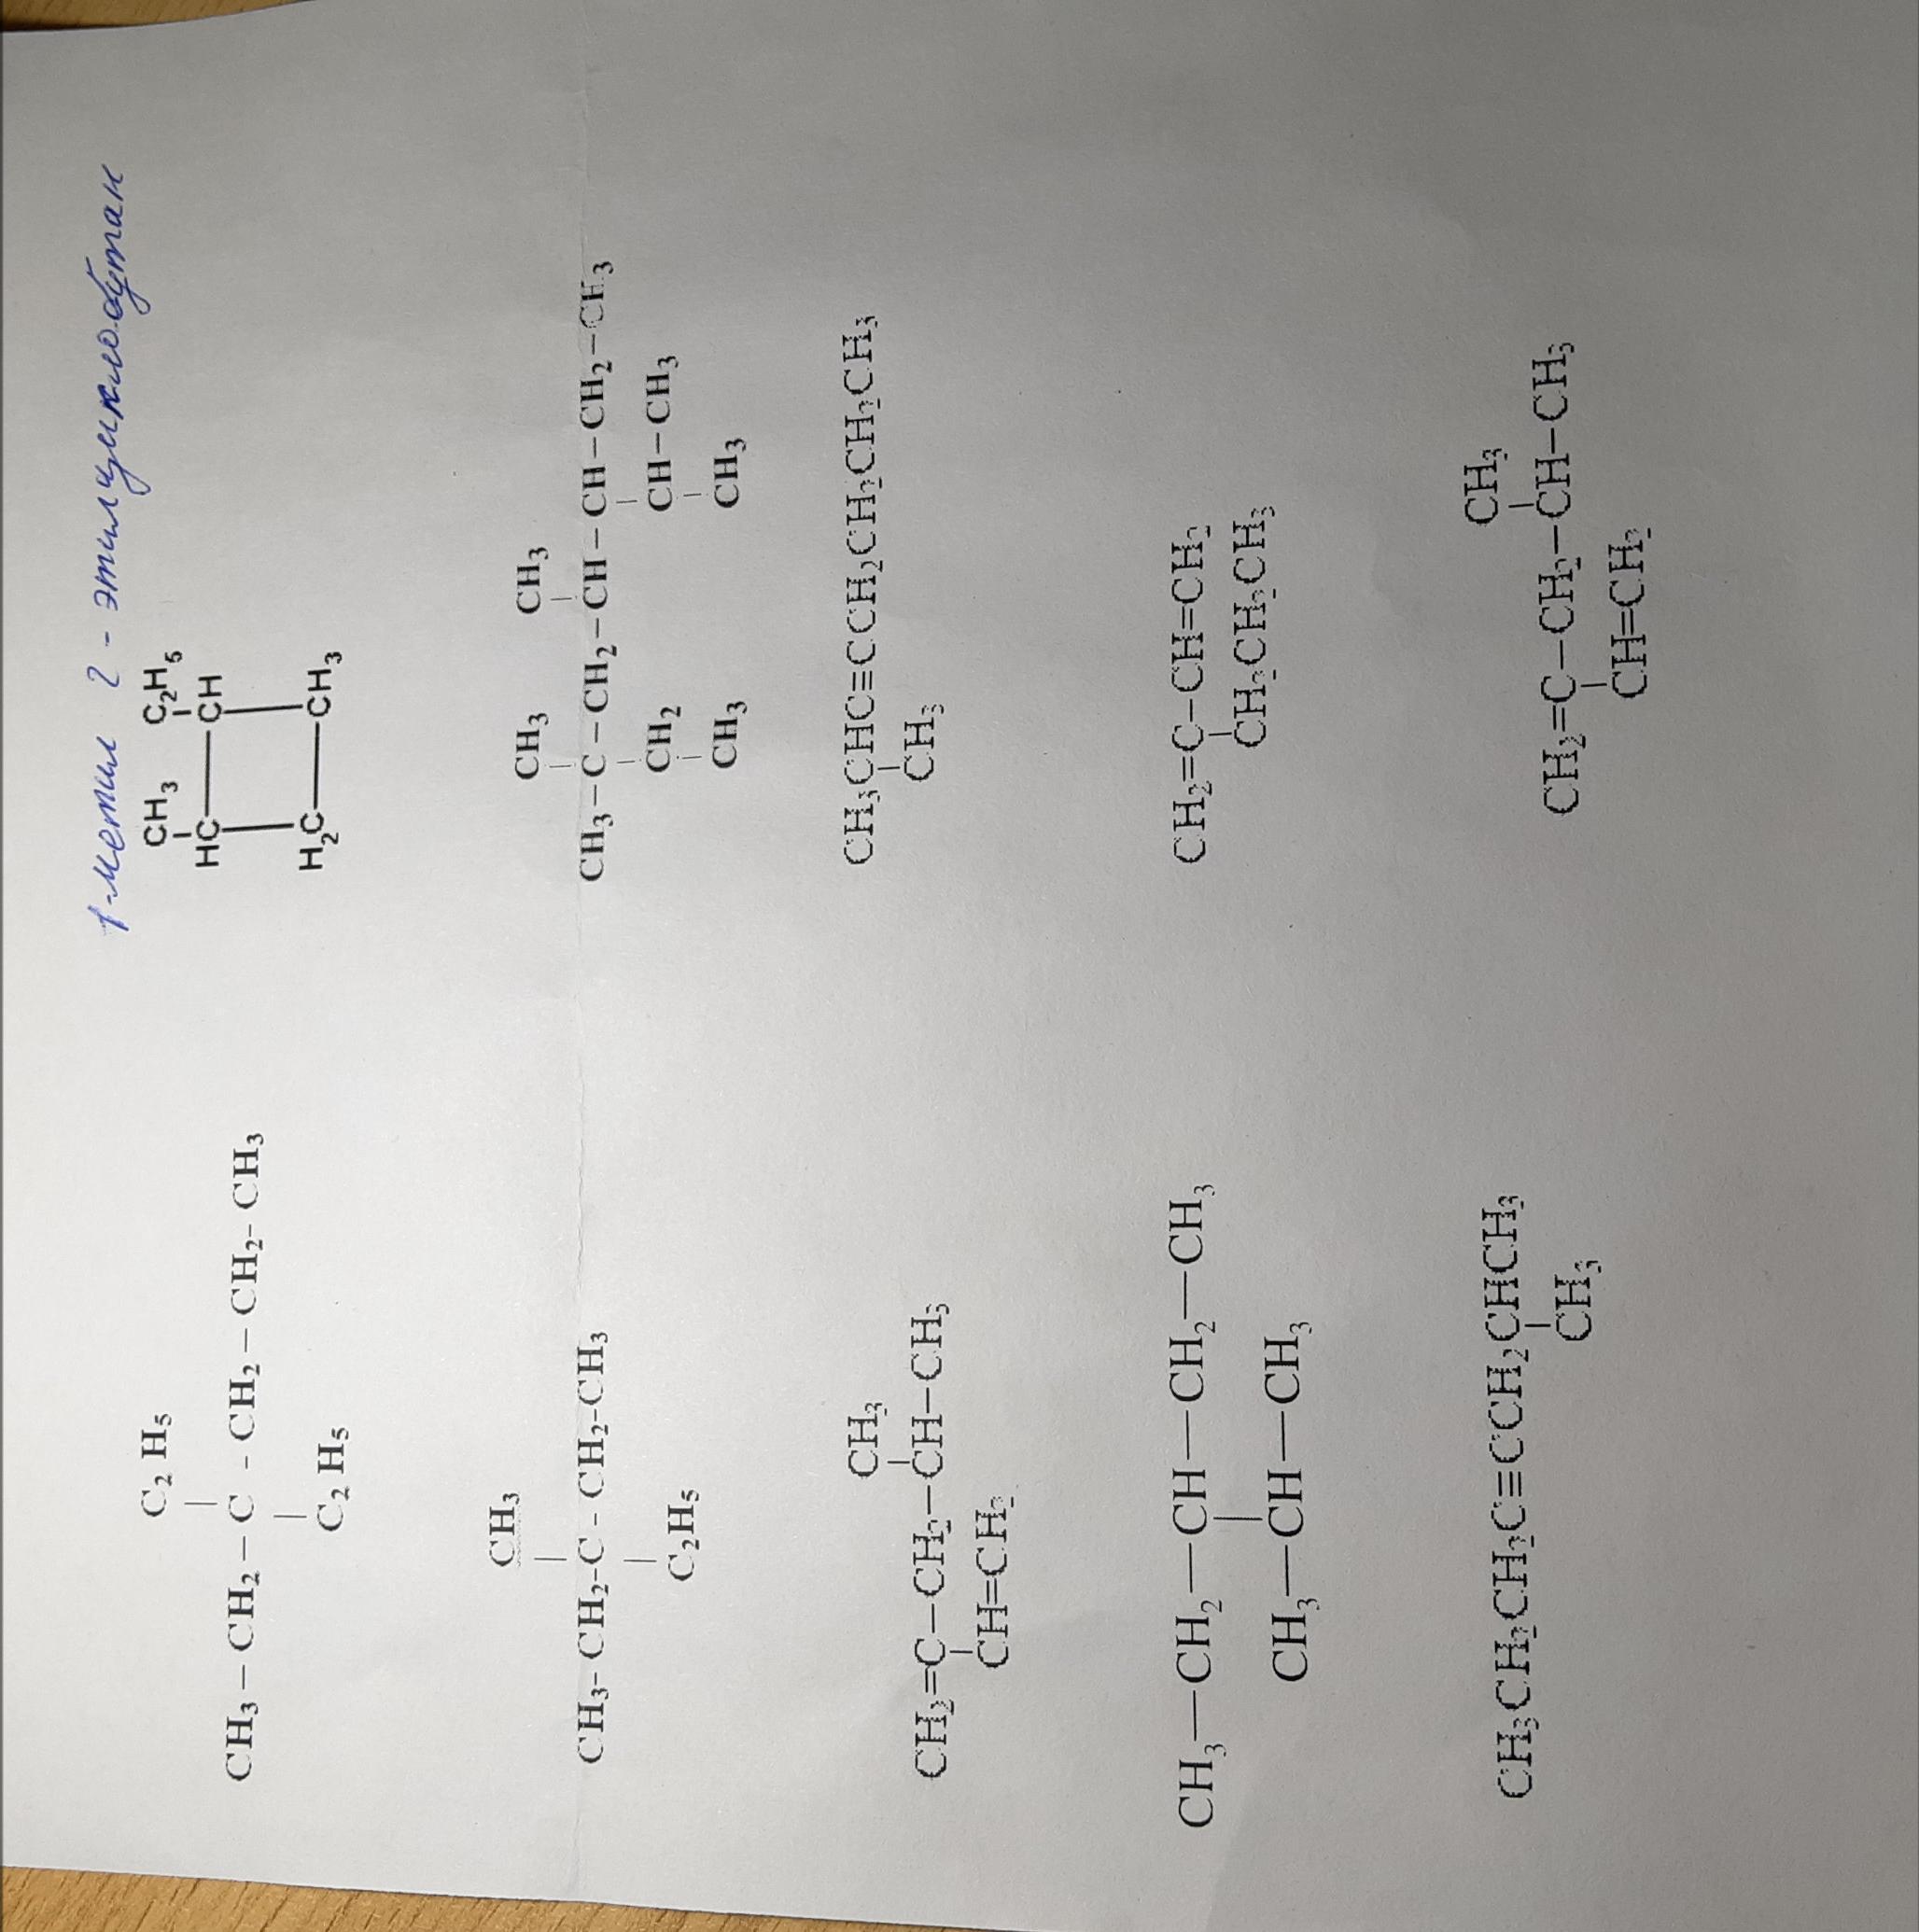 1-метил 2-этилциклобутан
C₂H₅
CH₃–CH₂–C-CH₂–CH₂-CH₃
C₂H₅
CH₃ C₂H₅
HC CH
H₂C CH₃
CH₃
CH₃-CH₂-C-CH₂-CH₃
C₂H₅
CH₃ CH₃
CH₃–C–CH₂–CH–CH–CH₂–CH₃
CH₂ CH–CH₃
CH₃ CH₃
CH₃
CH₂=C–CH₂–CH–CH₃
CH=CH₂
CH₃CHC≡CCH₂CH₂CH₂CH₃
CH₃
CH₃—CH₂—CH—CH₂—CH₃
CH₃—CH—CH₃
CH₂=C–CH=CH₂
CH₂CH₂CH₃
CH₃CH₂CH₂C≡CCH₂CHCH₃
CH₃
CH₃
CH₂=C–CH₂–CH–CH₃
CH=CH₂